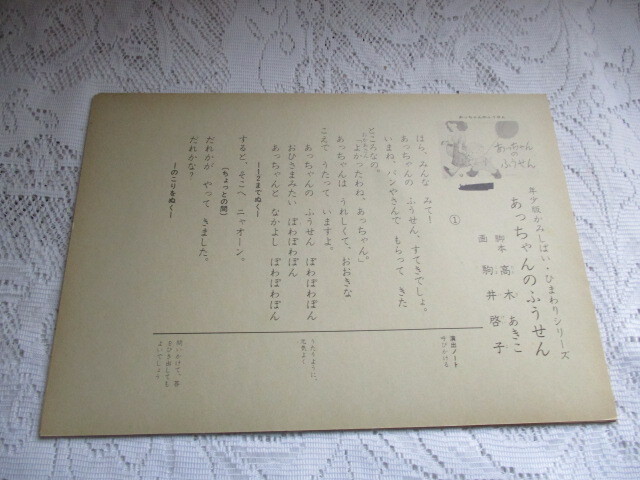 年少版かみしばい・ひまわりシリーズ
あっちゃんのふうせん
脚本 高木あきこ
画 駒井啓子
あっちゃんのふうせん
①
ほら、みんな みて!
あっちゃんの ふうせん、すてきでしょ。
いまね、パンやさんで もらって きた
ところなの。
「よかったわね、あっちゃん。」
あっちゃんは うれしくて、おおきな
こえで うたって いますよ。
あっちゃんの ふうせん ぽわぽわぽん
おひさまみたい ぽわぽわぽん
あっちゃんと なかよし ぽわぽわぽん
―1/2までぬく―
すると、そこへ ニャオーン。
[ちょっとの間]
だれかが やって きました。
だれかな?
―のこりをぬく―
演出ノート
呼びかける
うたうように、
元気よく
問いかけて、答
えよいでしょう